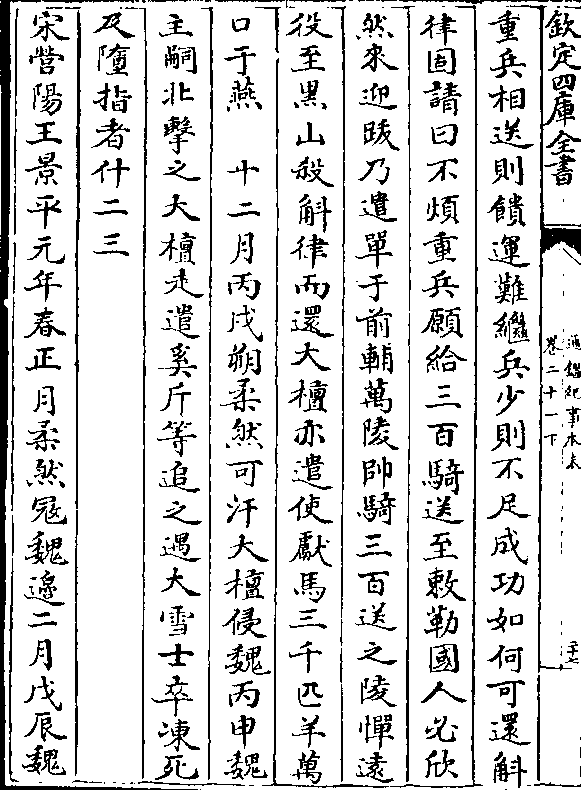 欽定四庫全書
通鑑紀事本末
卷二十一下
重兵相送則饋運難繼兵少則不足成功如何可還斛
律固請曰不煩重兵願給三百騎送至敕勒國人必欣
然來迎跋乃遣單于前輔萬陵帥騎三百送之陵憚遠
役至黑山殺斛律而還大檀亦遣使獻馬三千匹羊萬
口于燕　十二月丙戌朔柔然可汗大檀侵魏丙申魏
主嗣北擊之大檀走遣奚斤等追之遇大雪士卒凍死
及墮指者什二三
宋營陽王景平元年春正月柔然寇魏邊二月戊辰魏